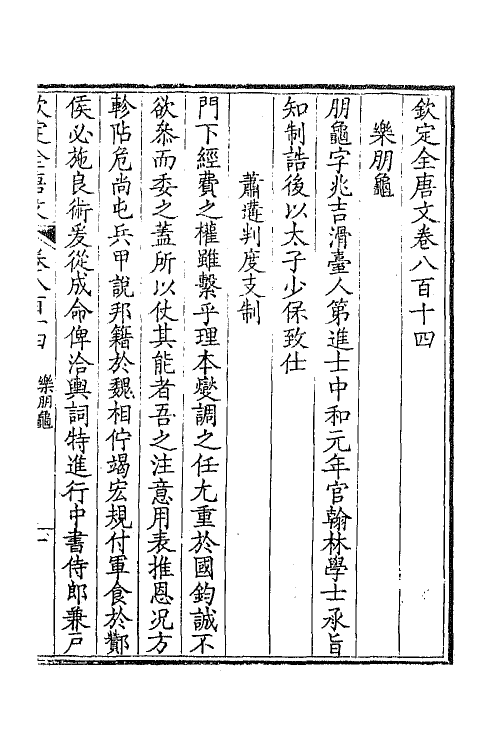 欽定全唐文卷八百十四
樂朋龜
朋龜字兆吉滑臺人第進士中和元年官翰林學士承旨
知制誥後以太子少保致仕
蕭遘判度支制
門下經費之權雖繫乎理本燮調之任尤重於國鈞誠不
欲叅而委之蓋所以仗其能者吾之注意用表推恩況方
軫阽危尚屯兵甲說邦籍於魏相佇竭宏規付軍食於酇
侯必施良術爰從成命俾洽輿詞特進行中書侍郎兼戸
欽定全唐文 卷八百十四 樂朋龜 一